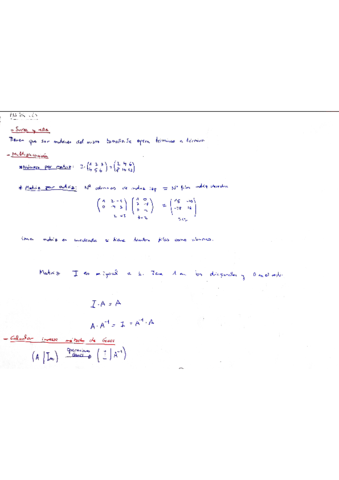 - Suma y resta
Tienen que ser matrices del mismo tamaño. Se opera término a término
- Multiplicación
* Número por matriz: 2·(1 2 3 / 4 5 6) = (2 4 6 / 8 10 12)
* Matriz por matriz: Nº columnas de matriz izq = Nº filas matriz derecha
2×3 3×2 2×2
Una matriz es cuadrada si tiene tantas filas como columnas.
Matriz I es original a 1. Tiene 1 en los diagonales y 0 en el resto.
I · A = A
A · A⁻¹ = I = A⁻¹ · A
- Calcular inversa método de Gauss
(A | Im) operaciones Gauss → ( I | A⁻¹)